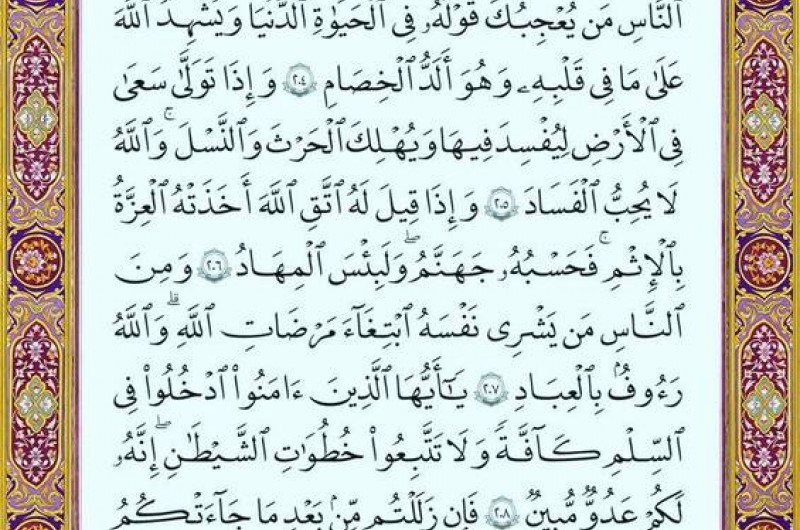 ٱلنَّاسِ مَن يُعْجِبُكَ قَوْلُهُۥ فِى ٱلْحَيَوٰةِ ٱلدُّنْيَا وَيُشْهِدُ ٱللَّهَ
عَلَىٰ مَا فِى قَلْبِهِۦ وَهُوَ أَلَدُّ ٱلْخِصَامِ ٢٠٤ وَإِذَا تَوَلَّىٰ سَعَىٰ
فِى ٱلْأَرْضِ لِيُفْسِدَ فِيهَا وَيُهْلِكَ ٱلْحَرْثَ وَٱلنَّسْلَ ۚ وَٱللَّهُ
لَا يُحِبُّ ٱلْفَسَادَ ٢٠٥ وَإِذَا قِيلَ لَهُ ٱتَّقِ ٱللَّهَ أَخَذَتْهُ ٱلْعِزَّةُ
بِٱلْإِثْمِ ۚ فَحَسْبُهُۥ جَهَنَّمُ ۖ وَلَبِئْسَ ٱلْمِهَادُ ٢٠٦ وَمِنَ
ٱلنَّاسِ مَن يَشْرِى نَفْسَهُ ٱبْتِغَآءَ مَرْضَاتِ ٱللَّهِ ۗ وَٱللَّهُ
رَءُوفٌۢ بِٱلْعِبَادِ ٢٠٧ يَـٰٓأَيُّهَا ٱلَّذِينَ ءَامَنُوا۟ ٱدْخُلُوا۟ فِى
ٱلسِّلْمِ كَآفَّةً وَلَا تَتَّبِعُوا۟ خُطُوَٰتِ ٱلشَّيْطَـٰنِ ۚ إِنَّهُۥ
لَكُمْ عَدُوٌّ مُّبِينٌ ٢٠٨ فَإِن زَلَلْتُم مِّنۢ بَعْدِ مَا جَآءَتْكُمُ